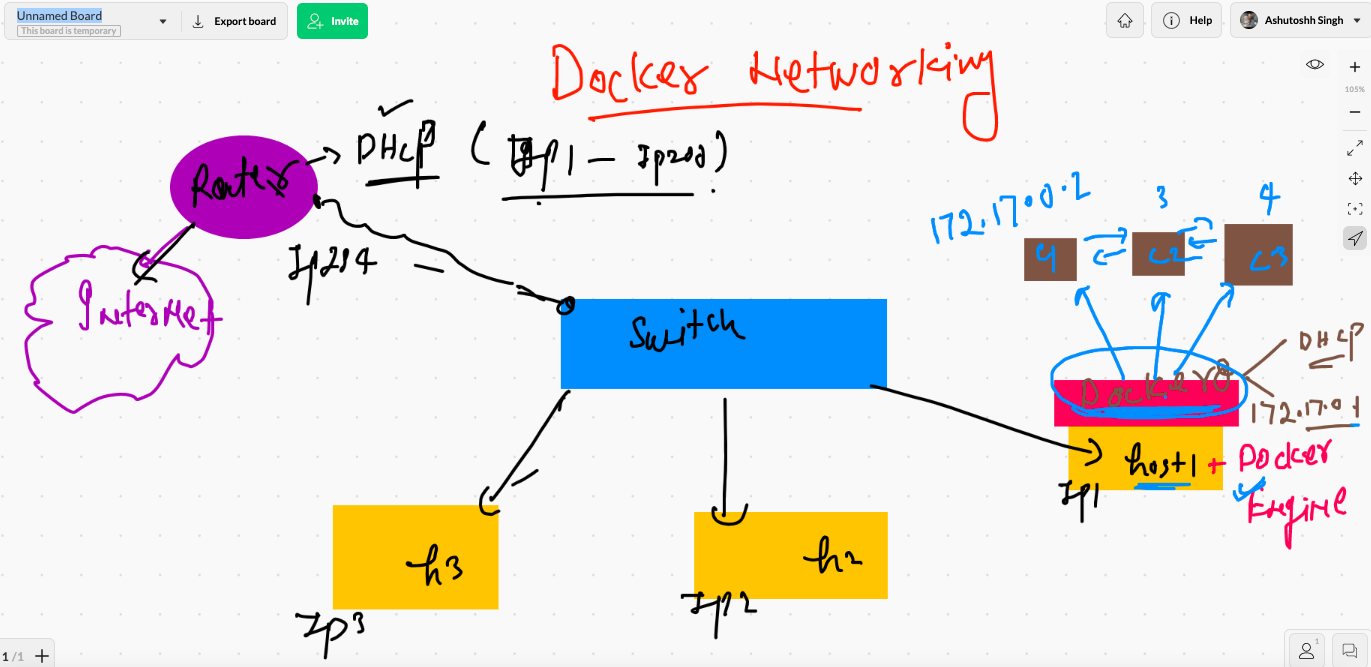 Unnamed Board
This board is temporary
Export board
Invite
Help
Ashutoshh Singh
105%
Docker Networking
Router
DHCP
Internet
Ip254
Switch
172.17.0.2
3
4
c2
c3
DHCP
Docker0
172.17.0.1
host1 + Docker
Engine
Ip1
h3
Ip3
h2
Ip2
1 / 1
1